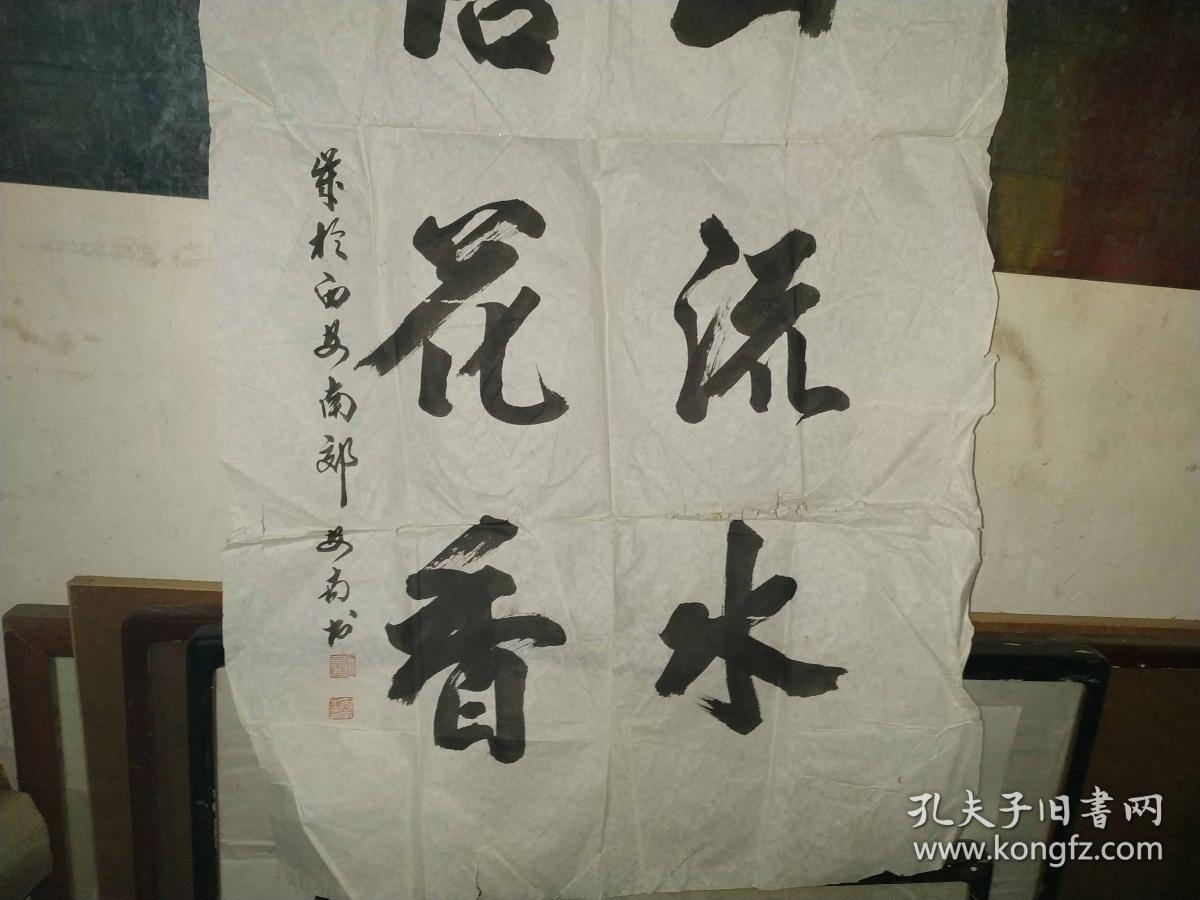 流水
花香
于西安南郊 安南书
孔夫子旧書网
www.kongfz.com